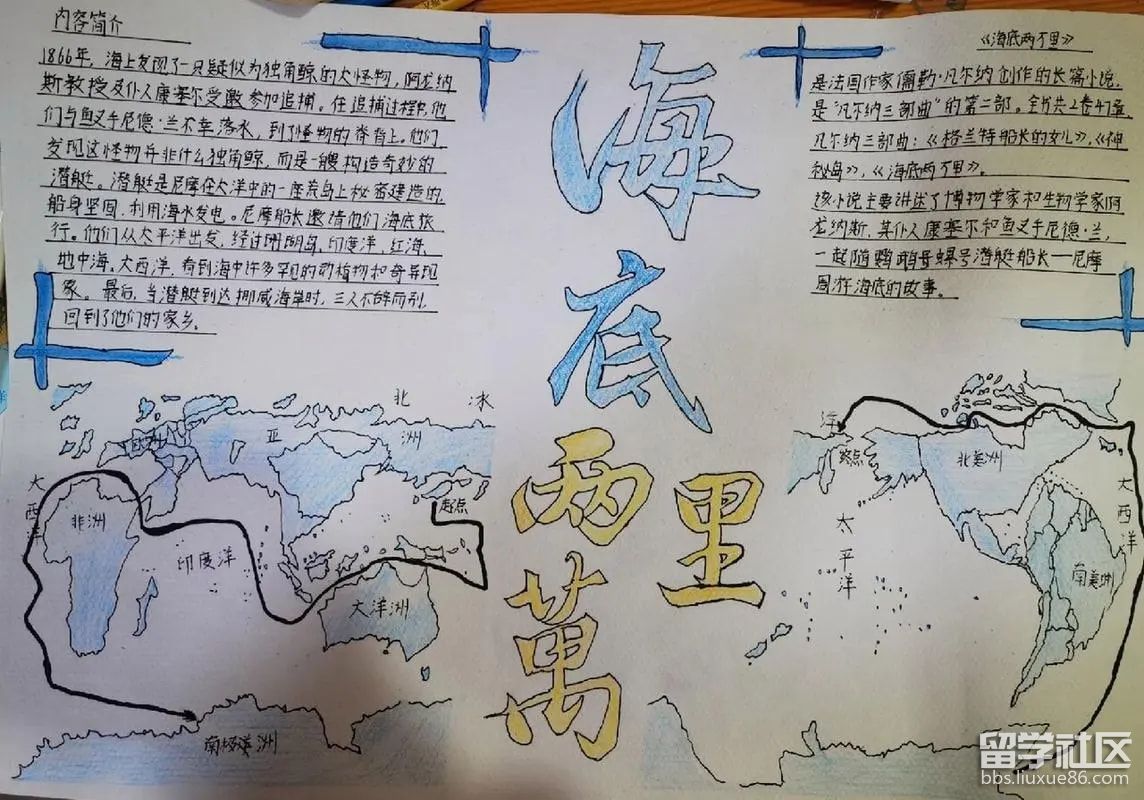 内容简介
1866年，海上发现了一只疑似为独角鲸的大怪物，阿龙纳
斯教授及仆人康塞尔受邀参加追捕。在追捕过程中，他
们与鱼叉手尼德·兰不幸落水，到了怪物的脊背上。他们
发现这怪物并非什么独角鲸，而是一艘构造奇妙的
潜艇。潜艇是尼摩在大洋中的一座荒岛上秘密建造的，
船身坚固，利用海水发电。尼摩船长邀请他们海底旅
行。他们从太平洋出发，经过珊瑚岛，印度洋，红海，
地中海，大西洋，看到海中许多罕见的动植物和奇异现
象。最后，当潜艇到达挪威海岸时，三人不辞而别，
回到了他们的家乡。
海底
两萬
里
《海底两万里》
是法国作家儒勒·凡尔纳创作的长篇小说，
是“凡尔纳三部曲”的第二部。全书共2卷47章，
凡尔纳三部曲：《格兰特船长的女儿》，《神
秘岛》，《海底两万里》。
该小说主要讲述了博物学家和生物学家阿
龙纳斯，其仆人康塞尔和鱼叉手尼德·兰，
一起随鹦鹉螺号潜艇船长—尼摩
周游海底的故事。
北 冰
亚 洲
大西洋
非洲
印度洋
起点
大洋洲
南极洲
洋
终点
北美洲
太平洋
大西洋
南美洲
留学社区
bbs.liuxue86.com